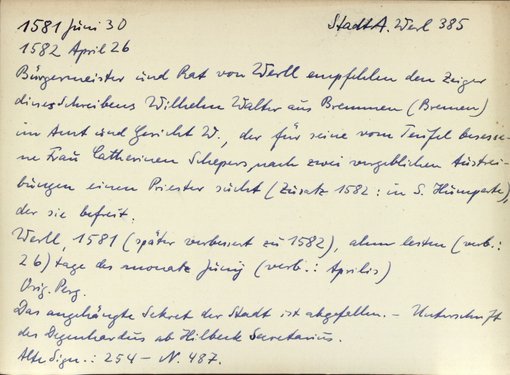 1581 Juni 30 StadtA. Werl 385
1582 April 26
Bürgermeister und Rat von Werll empfehlen den Zeiger
dieses Schreibens Wilhelm Walter aus Bremmen (Bremen)
im Amt und Gericht W., der für seine vom Teufel besesse-
ne Frau Catherinen Schepers, nach zwei vergeblichen Austrei-
bungen einen Priester sucht (Zusatz 1582: in S. Humperte),
der sie befreit.
Werll, 1581 (später verbessert zu 1582), ahm lesten (verb.:
26) tage des monatz Junij (verb.: Aprilis)
Orig. Perg.
Das angehängte Sekret der Stadt ist abgefallen. - Unterschrift
des Degenhardus ab Hilbeck Secretarius.
Alte Sign.: 254 - N. 487.